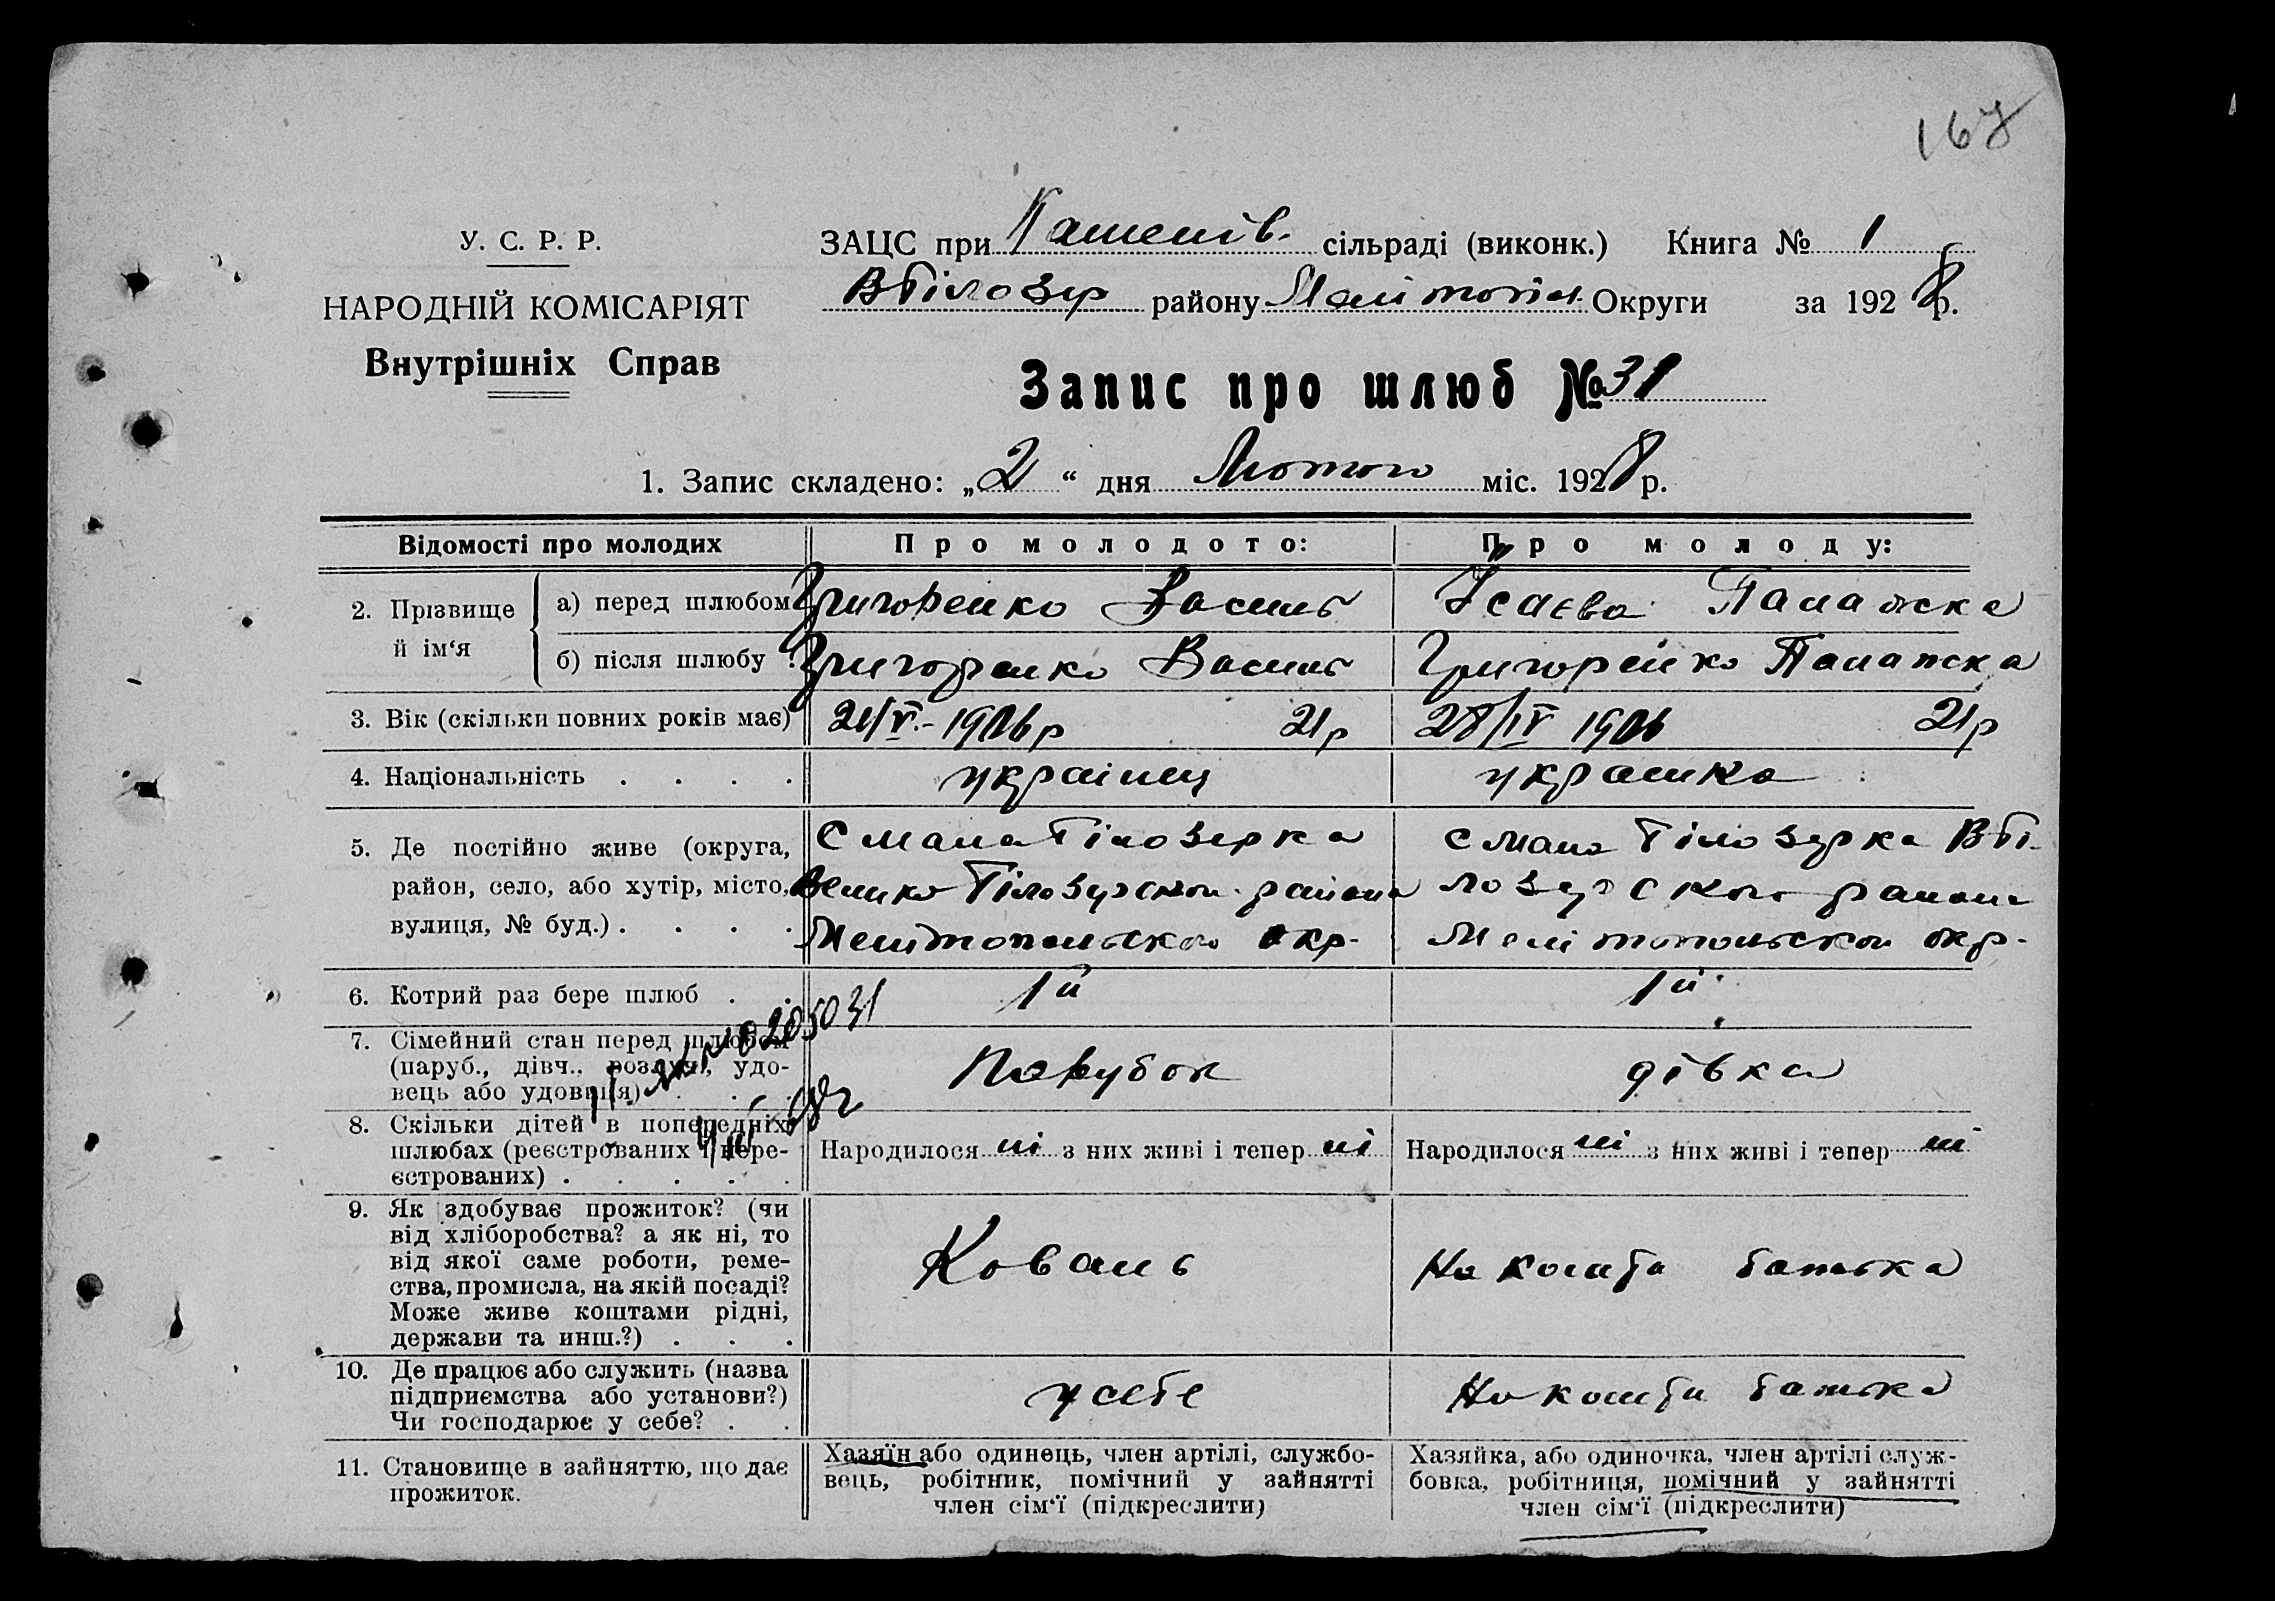 167
У. С. Р. Р.
НАРОДНІЙ КОМІСАРІЯТ
Внутрішніх Справ
ЗАЦС при сільраді (виконк.) Книга № 1
ВБілозер району Мелітопіл. Округи за 1928 р.
Запис про шлюб № 31
1. Запис складено: „2“ дня Лютого міс. 1928 р.
Відомості про молодих
Про молодого:
Про молоду:
2. Прізвище й ім‘я
а) перед шлюбом
Григоренко Василь
Ісаєва Палажка
б) після шлюбу
Григоренко Василь
Григоренко Палажка
3. Вік (скільки повних років має)
21/V - 1906 р 21 р
28/IV 1906 21 р
4. Національність . . . .
українец
українка
5. Де постійно живе (округа,
район, село, або хутір, місто,
вулиця, № буд.) . . . .
с Мала Білозерка
Велико Білозерского района
Мелітопольского окр.
с Мала Білозерка ВБі-
лозерского района
Мелітопольского окр.
6. Котрий раз бере шлюб . .
1й
1й
7. Сімейний стан перед шлюбом
(паруб., дівч., розлуч., удо-
вець або удовиця) . . .
Парубок
дівка
8. Скільки дітей в попередніх
шлюбах (реєстрованих і нере-
єстрованих) . . . . .
Народилося ні з них живі і тепер ні
Народилося ні з них живі і тепер ні
9. Як здобуває прожиток? (чи
від хліборобства? а як ні, то
від якої саме роботи, реме-
ства, промисла, на якій посаді?
Може живе коштами рідні,
держави та инш.?) . . .
Коваль
На кошти батька
10. Де працює або служить (назва
підприємства або установи?)
Чи господарює у себе? . .
у себе
На кошти батька
11. Становище в зайняттю, що дає
прожиток.
Хазяїн або одинець, член артілі, службо-
вець, робітник, помічний у зайнятті
член сім‘ї (підкреслити)
Хазяйка, або одиночка, член артілі служ-
бовка, робітниця, помічний у зайнятті
член сім‘ї (підкреслити)